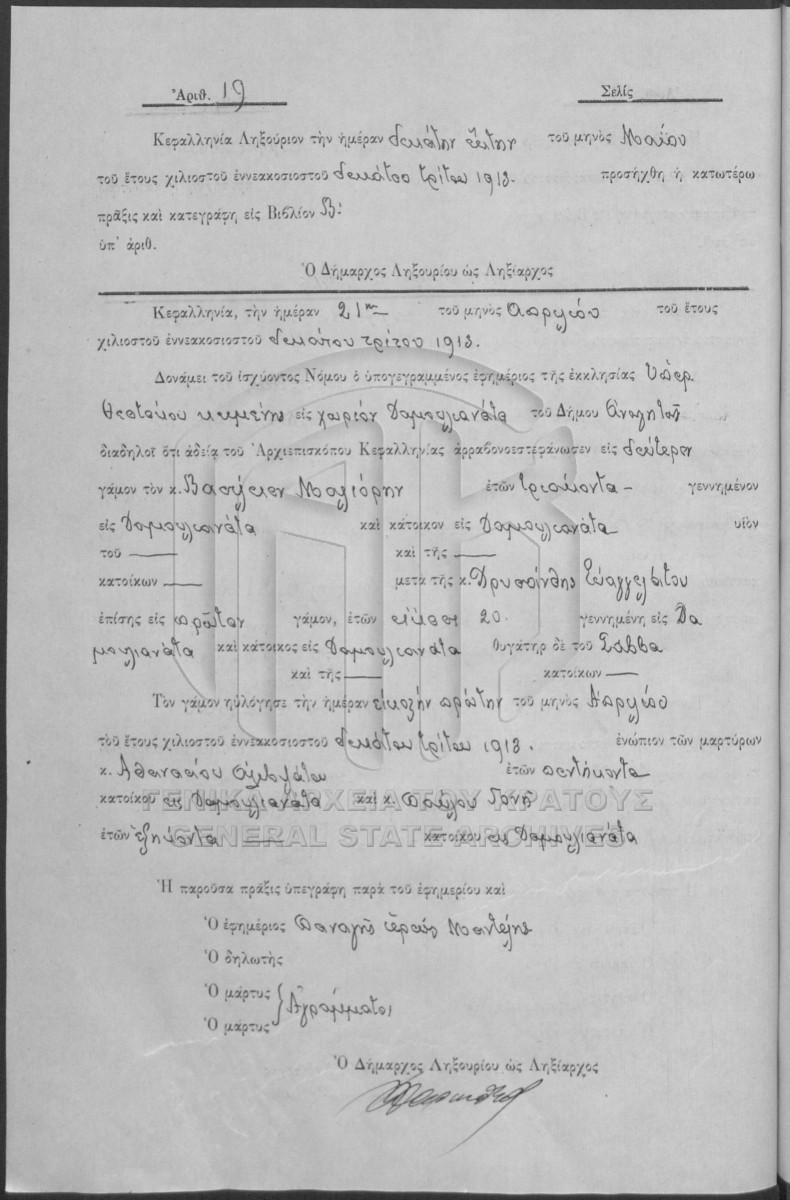 Ἀριθ. 19 Σελίς
Κεφαλληνία Ληξούριον τὴν ἡμέραν δεκάτην ἕκτην τοῦ μηνὸς Μαΐου
τοῦ ἔτους χιλιοστοῦ ἐννεακοσιοστοῦ δεκάτου τρίτου 1913. προσήχθη ἡ κατωτέρω
πρᾶξις καὶ κατεγράφη εἰς Βιβλίον Β!
ὑπ' ἀριθ.
Ὁ Δήμαρχος Ληξουρίου ὡς Ληξίαρχος
Κεφαλληνία, τὴν ἡμέραν 21ην τοῦ μηνὸς Απριλίου τοῦ ἔτους
χιλιοστοῦ ἐννεακοσιοστοῦ δεκάτου τρίτου 1913.
Δυνάμει τοῦ ἰσχύοντος Νόμου ὁ ὑπογεγραμμένος ἐφημέριος τῆς ἐκκλησίας Ὑπερ.
Θεοτόκου κειμένης εἰς χωρίον Δαμουλιανάτα τοῦ Δήμου Ανωγῆς
διαδηλοῖ ὅτι ἀδείᾳ τοῦ Ἀρχιεπισκόπου Κεφαλληνίας ἀρραβονοεστεφάνωσεν εἰς δεύτερον
γάμον τὸν κ. Βασίλειον Μαλιόρην ἐτῶν τριάκοντα – γεννημένον
εἰς Δαμουλιανάτα καὶ κάτοικον εἰς Δαμουλιανάτα υἱὸν
τοῦ — καὶ τῆς —
κατοίκων — μετὰ τῆς κ. Χρυσάνθης Εὐαγγελάτου
ἐπίσης εἰς πρῶτον γάμον, ἐτῶν εἴκοσι 20. γεννημένη εἰς Δα
μουλιανάτα καὶ κάτοικος εἰς Δαμουλιανάτα θυγάτηρ δὲ τοῦ Σάββα
καὶ τῆς — κατοίκων —
Τὸν γάμον ηὐλόγησε τὴν ἡμέραν εἰκοστὴν πρώτην τοῦ μηνὸς Ἀπριλίου
τοῦ ἔτους χιλιοστοῦ ἐννεακοσιοστοῦ δεκάτου τρίτου 1913. ἐνώπιον τῶν μαρτύρων
κ. Αθανασίου ἐτῶν πεντήκοντα
κατοίκου εἰς Δαμουλιανάτα καὶ κ. Παύλου
ἐτῶν ἑξήκοντα — κατοίκου εἰς Δαμουλιανάτα
ΓΕΝΙΚΑ ΑΡΧΕΙΑ ΤΟΥ ΚΡΑΤΟΥΣ
GENERAL STATE ARCHIVES
Ἡ παροῦσα πρᾶξις ὑπεγράφη παρὰ τοῦ ἐφημερίου καὶ
Ὁ ἐφημέριος Παναγῆς ἱερεὺς
Ὁ δηλωτὴς
Ὁ μάρτυς } Ἀγράμματοι
Ὁ μάρτυς
Ὁ Δήμαρχος Ληξουρίου ὡς Ληξίαρχος